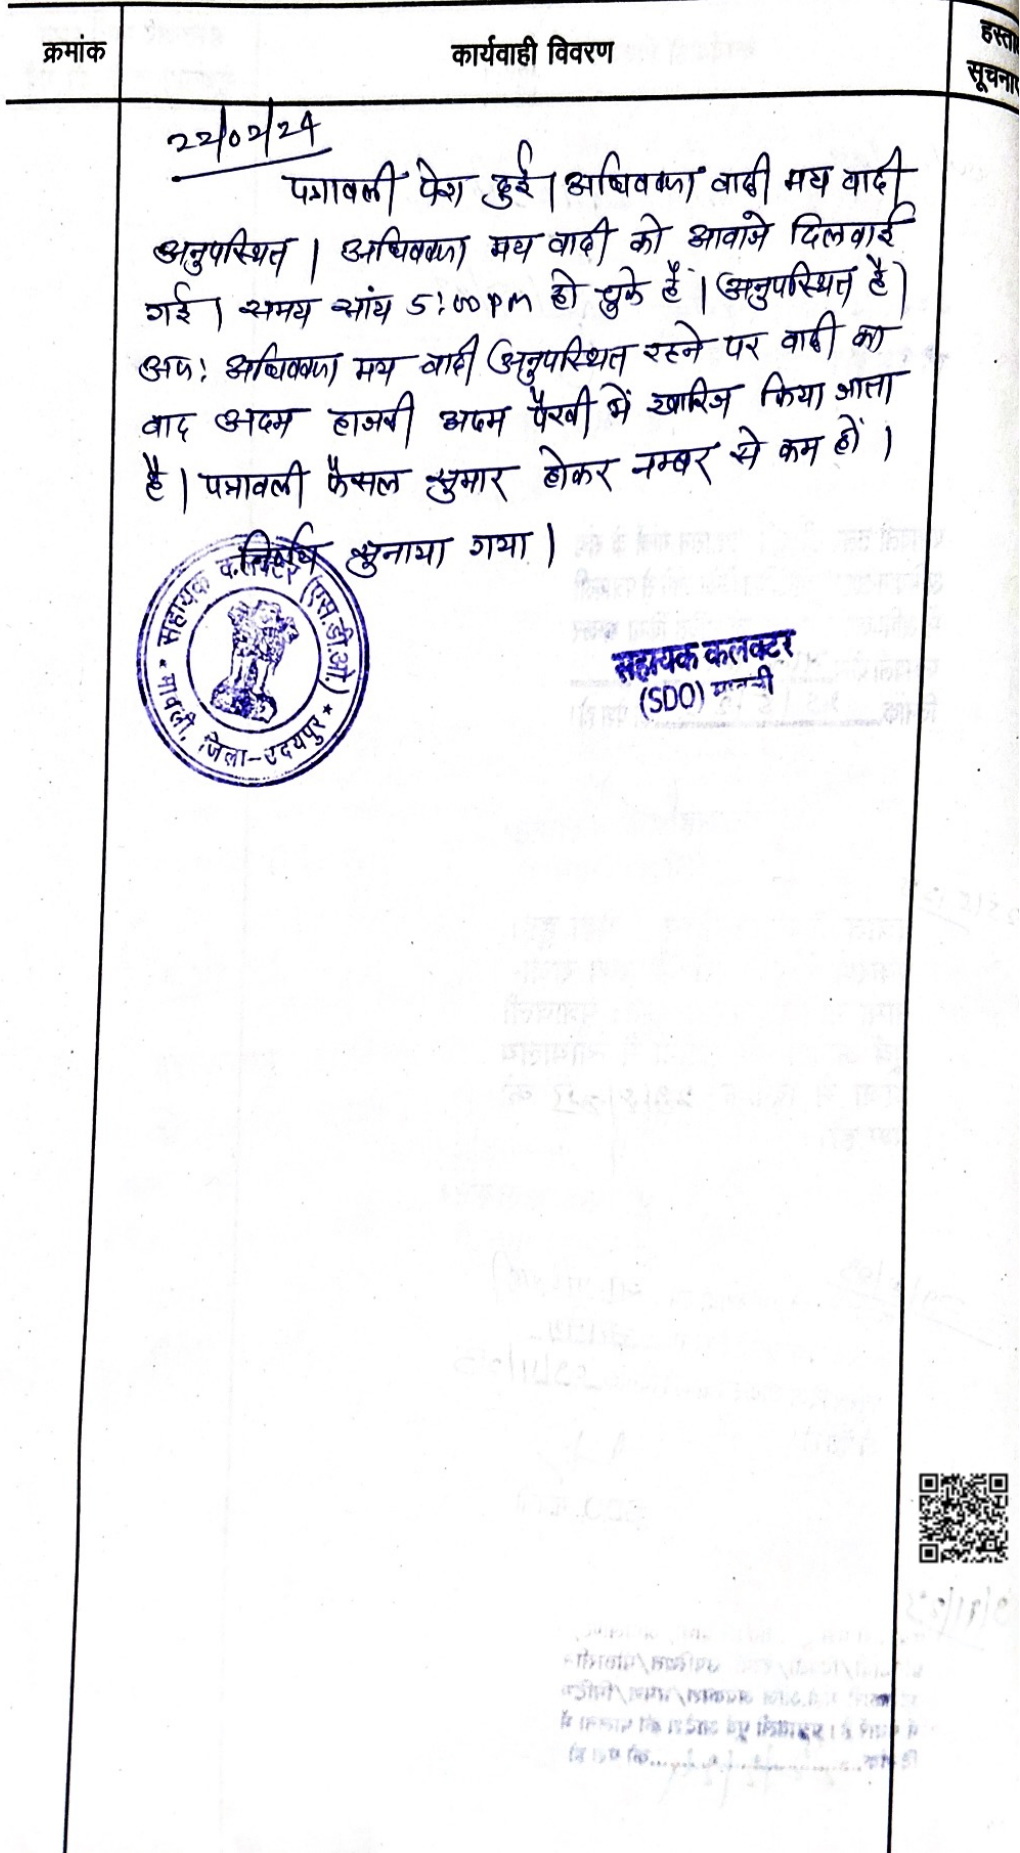 क्रमांक
कार्यवाही विवरण
हस्ता
सूचना
22/02/24
पत्रावली पेश हुई। अधिवक्ता वादी मय वादी
अनुपस्थित। अधिवक्ता मय वादी को आवाजे दिलवाई
गई। समय सांय 5:00 pm हो चुके है। अनुपस्थित है।
अतः अधिवक्ता मय वादी अनुपस्थित रहने पर वादी का
वाद अदम हाजरी अदम पैरवी में खारिज किया जाता
है। पत्रावली फैसल शुमार होकर नम्बर से कम हों।
निर्णय सुनाया गया।
सहायक कलक्टर (एस.डी.ओ.)
मावली, जिला-उदयपुर
सहायक कलक्टर
(SDO) मावली